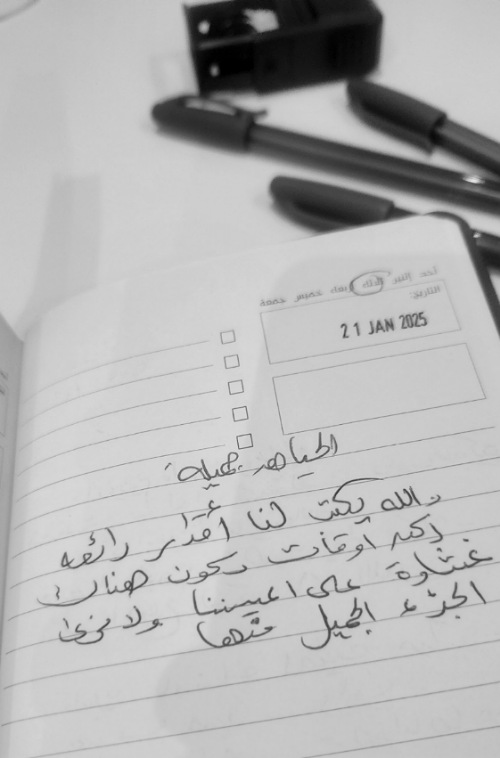 أحد اثنين ثلاثاء أربعاء خميس جمعة
التاريخ:
21 JAN 2025
الحياه جميله
والله يكتب لنا أقدار رائعه
أكثر اوقات يكون هناك
غشاوة على اعيننا ولا نرى
الجزء الجميل منها